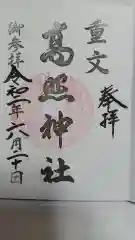 重文
奉拝
高照神社
御参拝
令和一年六月二十日